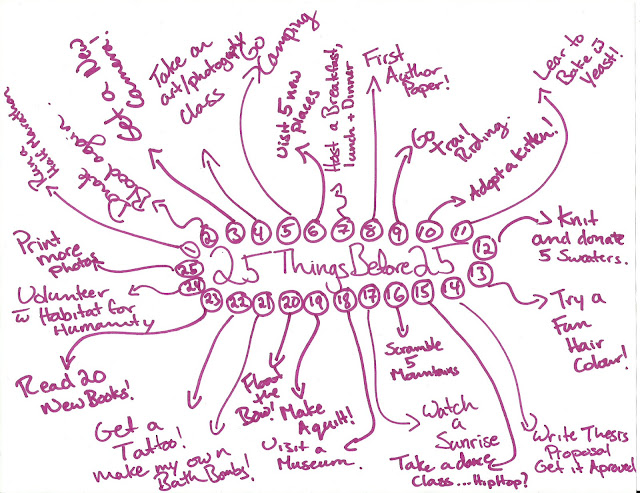 Run a
Half Marathon
Donate
Blood again.
Get a New
Camera!
Take an
art/photography
class
Go
Camping
Visit 5 new
places
Host a Breakfast,
Lunch + Dinner
First
Author
Paper!
Go
Trail
Riding.
Adopt a Kitten!
Lear to
Bake w
Yeast!
1 2 3 4 5 6 7 8 9 10 11
12
Knit
and donate
5 Sweaters.
25 Things Before 25
Print
more
photos
25
Volunteer
w Habitat for
Humanity
24
13
Try a
Fun
Hair
Colour!
23 22 21 20 19 18 17 16 15 14
Read 20
New Books!
Get a
Tattoo!
make my own
Bath Bombs!
Float
the
Bow!
Make
A quilt!
Visit a
Museum.
Scramble
5
Mountains
Watch
a
Sunrise
Take a dance
Class...HipHop?
Write Thesis
Proposal
Get it Aproved